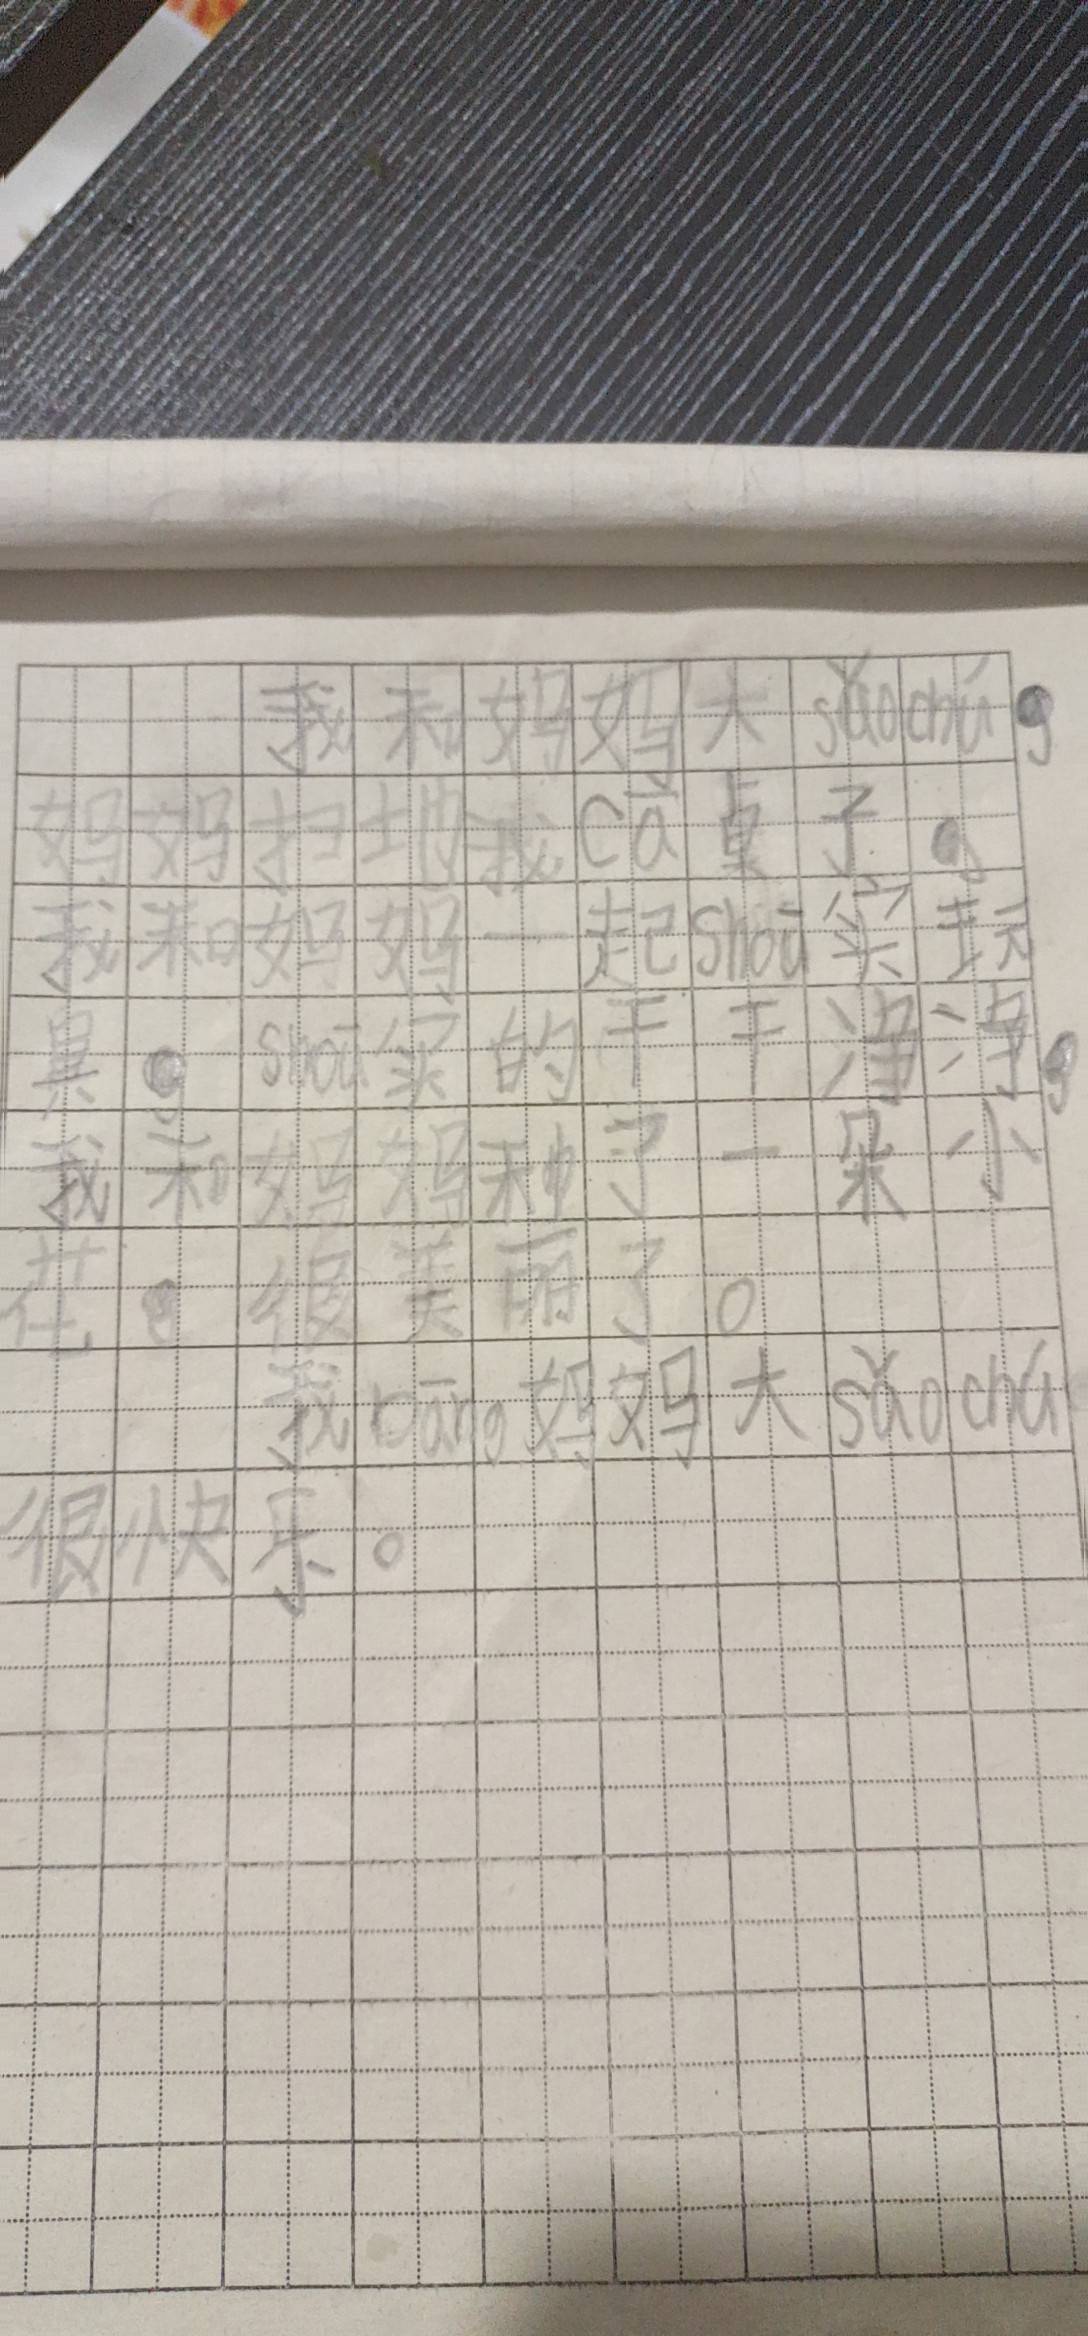 我和妈妈大sǎochú，
妈妈扫地我cā桌子，
我和妈妈一起shōu实玩
具，shōu实的干干净净，
我和妈妈种了一朵小
花，很美丽了。
我bāng妈妈大sǎochú
很快乐。